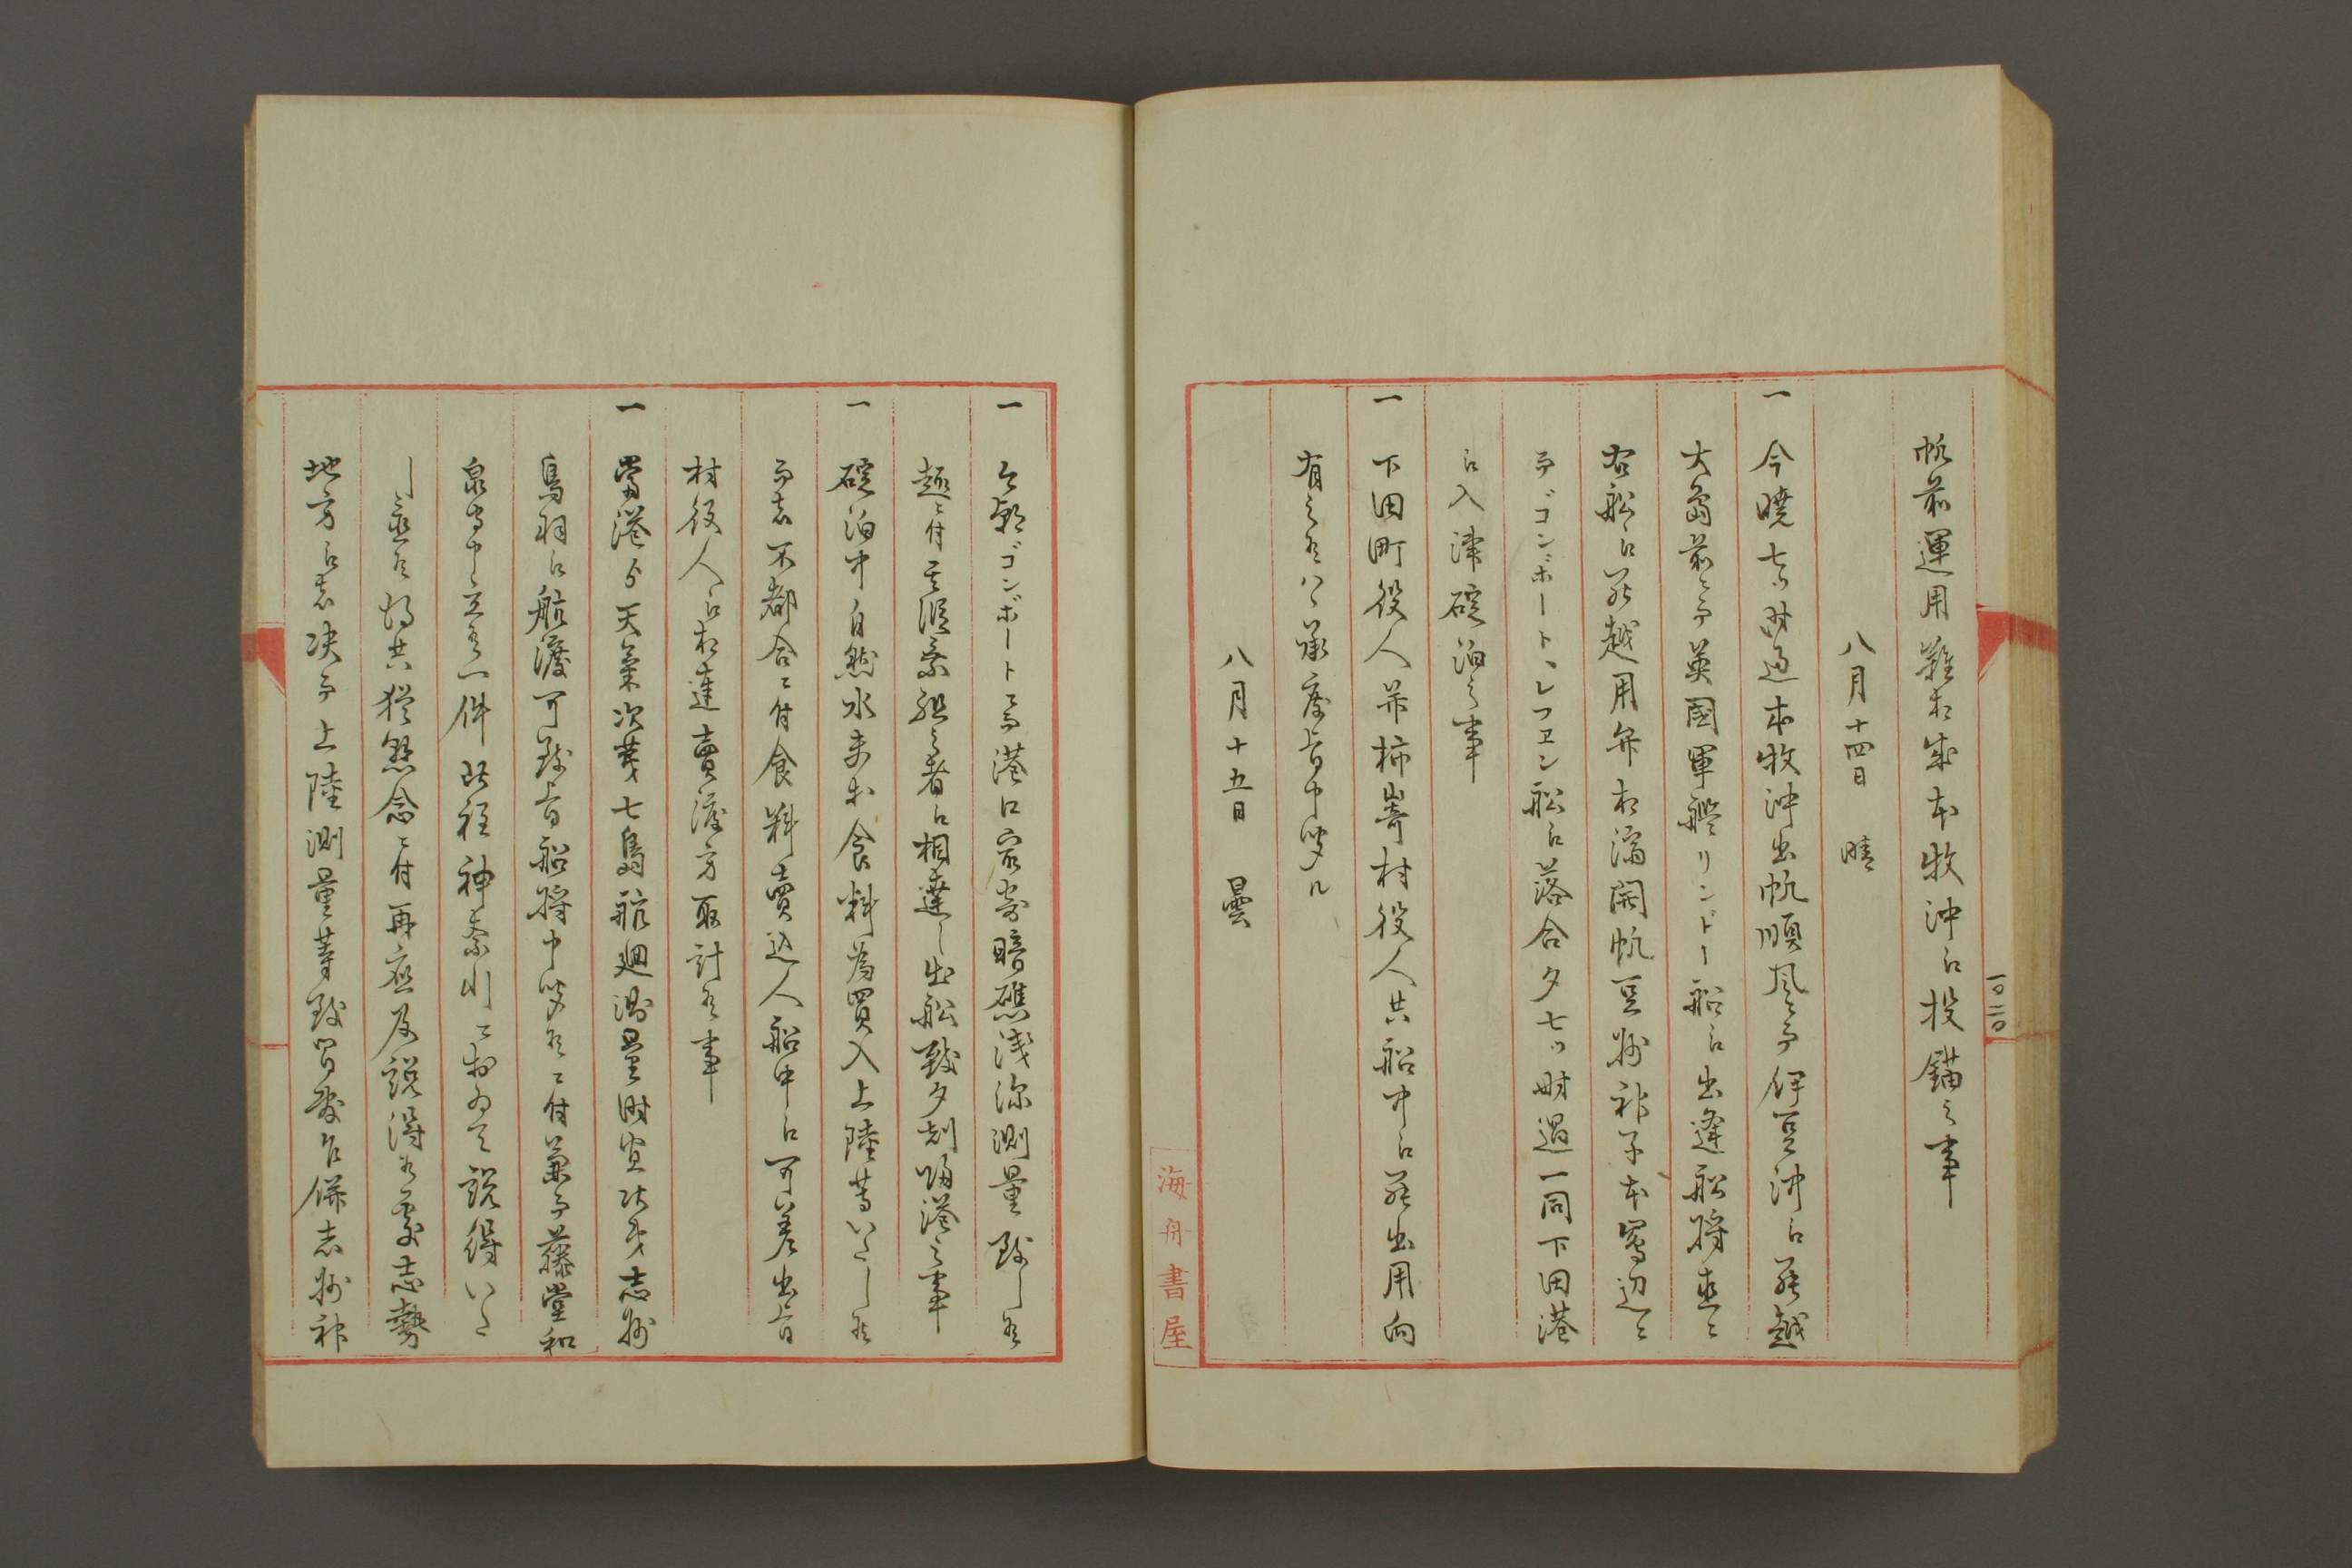 帆前運用難相成本牧沖江投錨之事
八月十四日 晴
一 今暁七ツ時過本牧沖出帆順風ニ而伊豆沖江罷越
大島前ニ而英國軍艦リンドー船江出逢船将直ニ
右船江罷越用弁相済開帆豆州神子本島辺ニ
而ゴンボート、レフヱン船江落合夕七ツ時過一同下田港
江入津碇泊之事
一 下田町役人并柿崎村役人共船中江罷出用向
有之候ハヽ承度旨申聞ル
八月十五日 曇
一 今朝ゴンボートニ而港口岩岩暗礁浅深測量致し候
趣ニ付其段乗組之者江相達し出船致夕刻帰港之事
一 碇泊中自然水夫等食料為買入上陸等いたし候
而者不都合ニ付食料賣込人船中江可差出旨
村役人江相達賣渡方取計候事
一 當港ゟ天氣次第七島航廻測量時宜次第志州
鳥羽江航渡可致旨船将申聞候ニ付兼而藤堂和
泉守申立候一件此程神奈川ニ於ゐて説得いた
し置候得共猶懸念ニ付再應及説得候處志勢
地方江者決而上陸測量等致間敷乍併志州神
海舟書屋